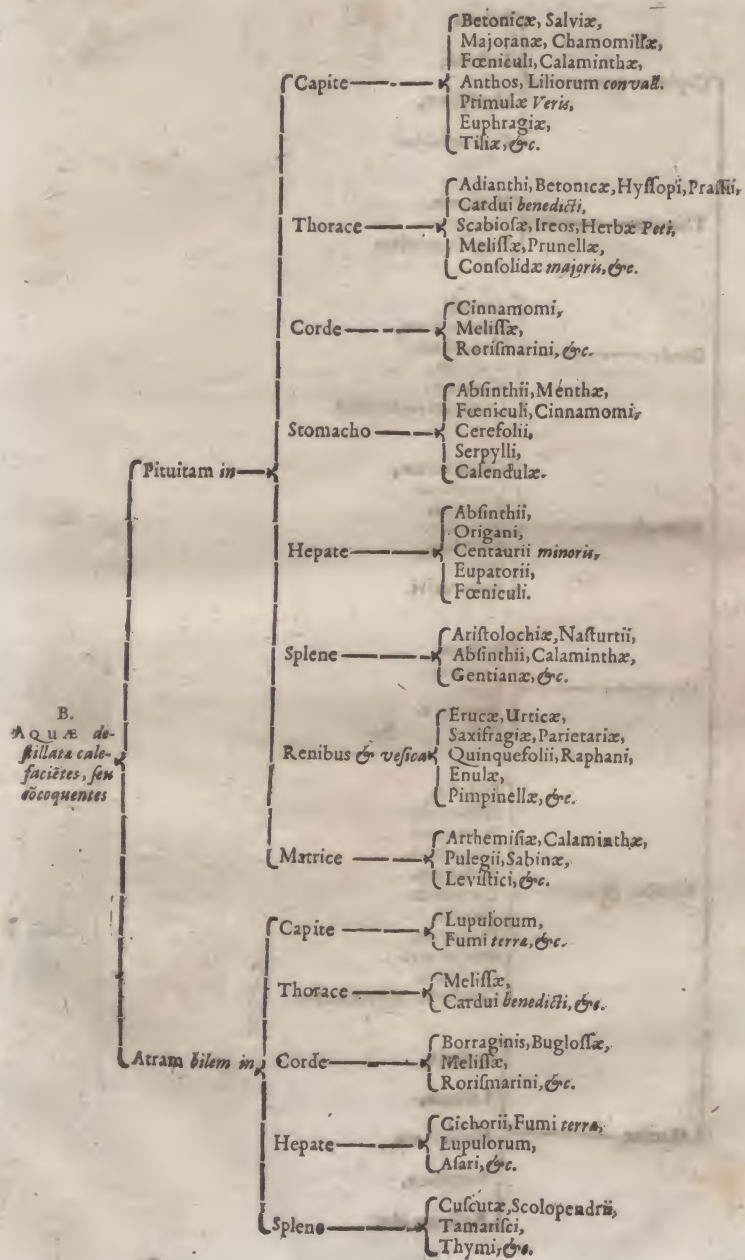 B.
AQUÆ de-
ſtillata cale-
faciẽtes, ſeu
cõcoquentes
Pituitam in
Capite
Betonicæ, Salviæ,
Majoranæ, Chamomillæ,
Fœniculi, Calaminthæ,
Anthos, Liliorum convall.
Primulæ Veris,
Euphragiæ,
Tiliæ, &c.
Thorace
Adianthi, Betonicæ, Hyſſopi, Praſſii,
Cardui benedicti,
Scabioſæ, Ireos, Herbæ Peti,
Meliſſæ, Prunellæ,
Conſolidæ majoris, &c.
Corde
Cinnamomi,
Meliſſæ,
Roriſmarini, &c.
Stomacho
Abſinthii, Menthæ,
Fœniculi, Cinnamomi,
Cerefolii,
Serpylli,
Calendulæ.
Hepate
Abſinthii,
Origani,
Centaurii minoris,
Eupatorii,
Fœniculi.
Splene
Ariſtolochiæ, Naſturtii,
Abſinthii, Calaminthæ,
Gentianæ, &c.
Renibus & veſica
Erucæ, Urticæ,
Saxifragiæ, Parietariæ,
Quinquefolii, Raphani,
Enulæ,
Pimpinellæ, &c.
Matrice
Arthemiſiæ, Calaminthæ,
Pulegii, Sabinæ,
Leviſtici, &c.
Atram bilem in
Capite
Lupulorum,
Fumi terra, &c.
Thorace
Meliſſæ,
Cardui benedicti, &c.
Corde
Borraginis, Bugloſſæ,
Meliſſæ,
Roriſmarini, &c.
Hepate
Cichorii, Fumi terra,
Lupulorum,
Aſari, &c.
Splene
Cuſcutæ, Scolopendrii,
Tamariſci,
Thymi, &c.